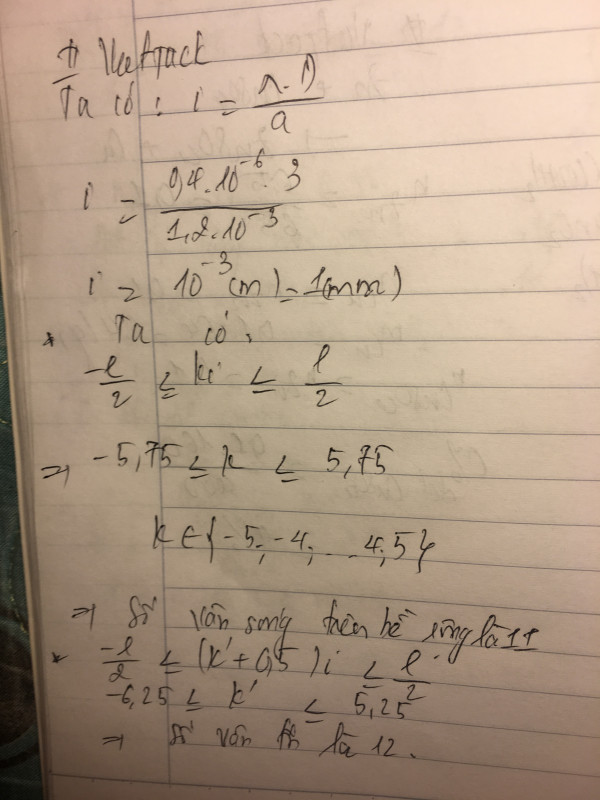 Ta có : i = λ.D / a
i = 0,4.10^-6 . 3 / 1,2.10^-3
i = 10^-3 (m) = 1(mm)
* Ta có :
-l/2 ≤ ki ≤ l/2
⇒ -5,75 ≤ k ≤ 5,75
k ∈ { -5; -4; ... 4; 5}
⇒ Số vân sáng trên bề rộng là 11
* -l/2 ≤ (k' + 0,5) i ≤ l/2
-6,25 ≤ k' ≤ 5,25
⇒ số vân là 12.